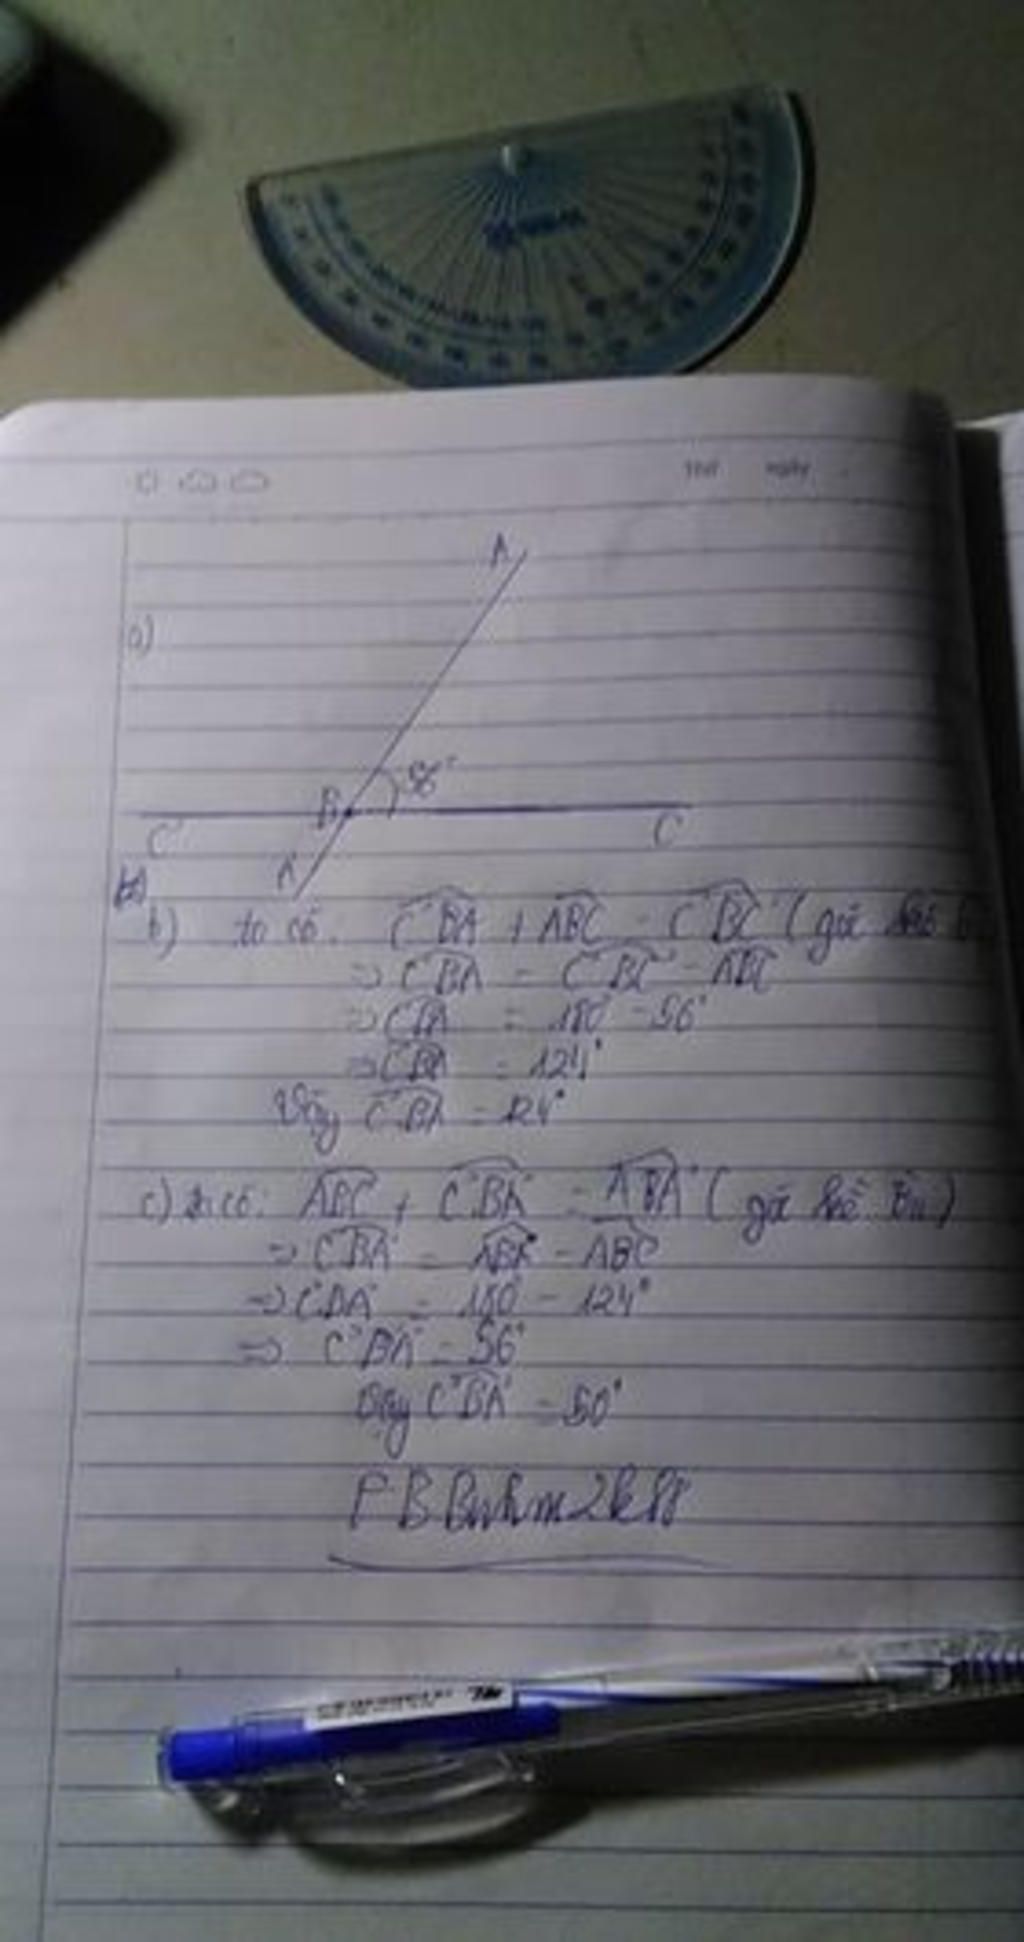 Thứ ngày
A
a)
B 56°
C' C
A'
b) ta có: C'BA + ABC = C'BC (góc kề
=> C'BA = C'BC - ABC
=> C'BA = 180 - 56°
=> C'BA = 124°
Vậy C'BA = 124°
c) ta có: ABC + C'BA' = ABA' (góc kề bù)
=> C'BA' = ABA' - ABC
=> C'BA' = 180 - 124°
=> C'BA' = 56°
Vậy C'BA' = 50°
FB